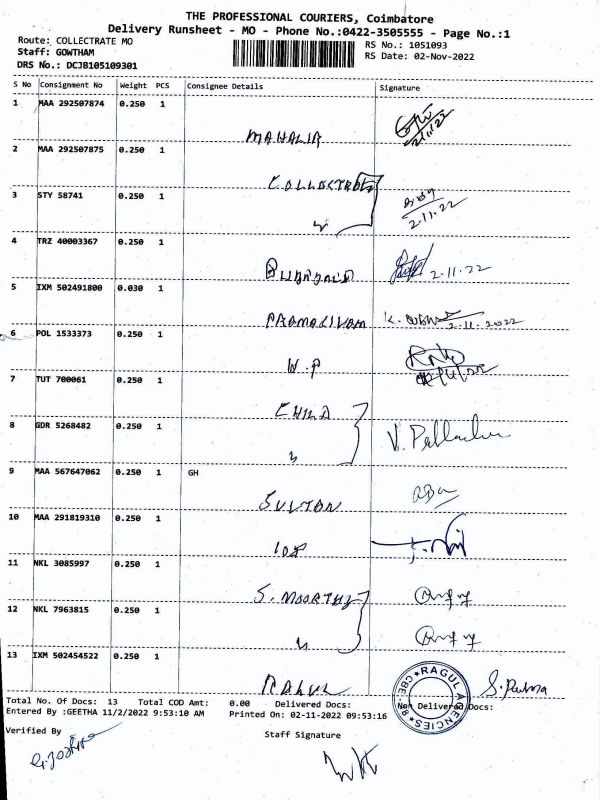 THE PROFESSIONAL COURIERS, Coimbatore
Delivery Runsheet - MO - Phone No.:0422-3505555 - Page No.:1
Route: COLLECTRATE MO
RS No.: 1051093
Staff: GOWTHAM
RS Date: 02-Nov-2022
DRS No.: DCJB105109301
S No Consignment No Weight PCS Consignee Details Signature
1 MAA 292507874 0.250 1
MAHALIA 2.11.22
2 MAA 292507875 0.250 1
COLLECTROT
3 STY 58741 0.250 1
2.11.22
4 TRZ 40003367 0.250 1
2.11.22
5 IXM 502491800 0.030 1
PARMASIVAM 2.11.2022
6 POL 1533373 0.250 1
W.P
7 TUT 700061 0.250 1
CHILD
8 GDR 5268482 0.250 1
9 MAA 567647062 0.250 1 GH
SULTON
10 MAA 291819310 0.250 1
108
11 NKL 3085997 0.250 1
S. MOORTHY
12 NKL 7963815 0.250 1
13 IXM 502454522 0.250 1
RAHUL
RAGUL AGENCIES
Total No. Of Docs: 13 Total COD Amt: 0.00 Delivered Docs: Non Delivered Docs:
Entered By :GEETHA 11/2/2022 9:53:10 AM Printed On: 02-11-2022 09:53:16
Verified By
Staff Signature